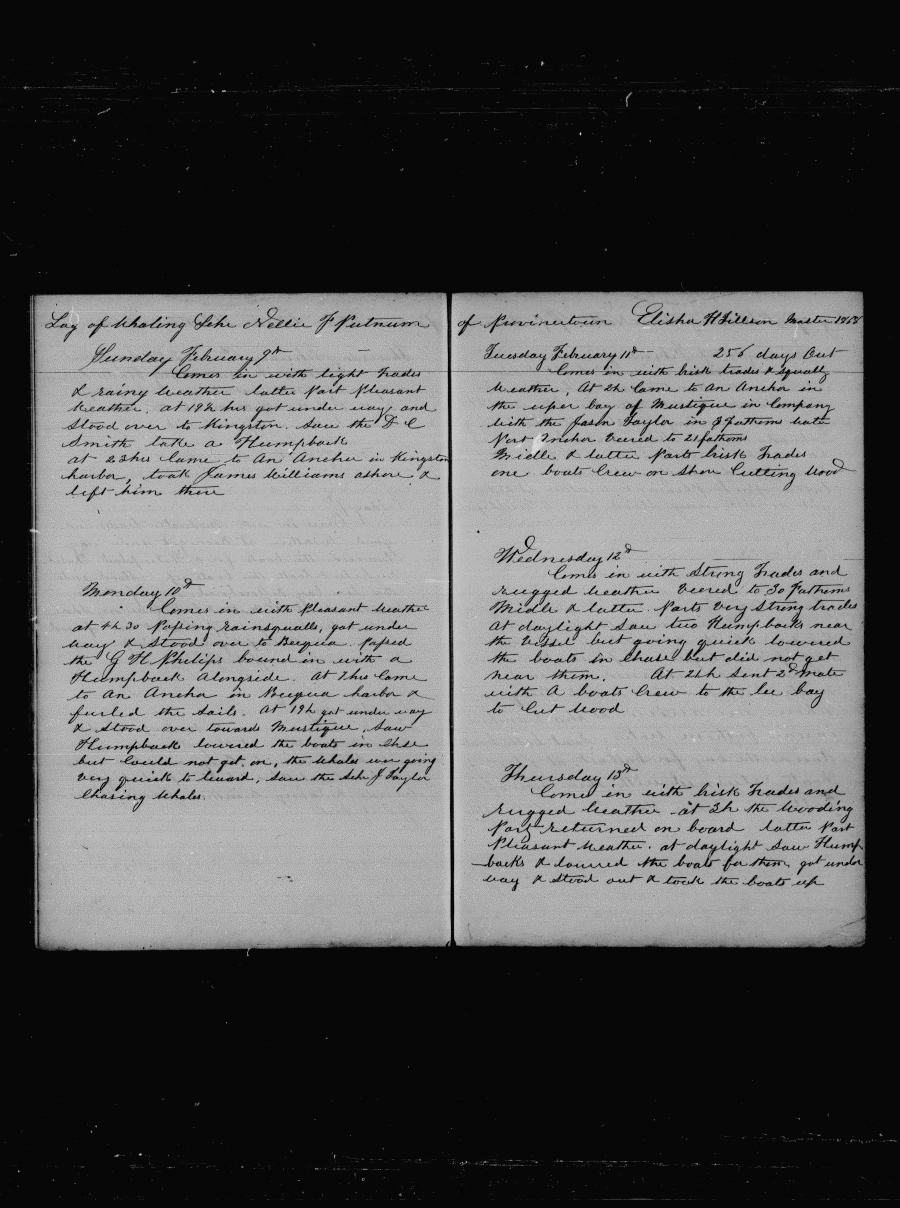 Log of Whaling Schr Nellie F Putnum
Sunday February 9th
Comes in with light trades
& rainy weather latter Part Pleasant
weather. at 19½ hrs got under way and
stood over to Kingston. Saw the D C
Smith take a Humpback
at 23hrs Came to An Anchor in Kingston
harbor, took James Williams ashore &
left him there
Monday 10th
Comes in with Pleasant weather
at 4h 30 Passing rainsqualls, got under
way & stood over to Bequa. Passed
the G H Philips bound in with a
Humpback Alongside. At 7hrs Came
to An Anchor in Bequa harbor &
furled the Sails. At 19h got under way
& stood over towards Mustique. Saw
Humpbacks lowered the boats in Chse
but Could not get on, the whales wer going
very quick to luard, saw the Schr J Taylor
Chasing whales.
of Provincetown Elisha H Tillson Master 1868
Tuesday February 11th 256 days Out
Comes in with brisk trades & squally
weather. At 2h Came to An Anchor in
the uper bay of Mustique in Company
with the Jason Taylor in 9 fathoms watr
Port Anchor veered to 21 fathoms
Middle & latter Parts brisk Trades
one boats Crew on Shore Cutting Wood
Wednesday 12th
Comes in with String Trades and
rugged weather Veered to 30 fathoms
Midle & latter Parts very strong trades
At daylight saw two Humpbacks near
the Vessel but going quick lowered
the boats in Chase but did not get
near them. At 24h sent 2d mate
with A boats Crew to the lee bay
to Cut Wood
Thursday 13th
Comes in with brisk Trades and
rugged weather at 3h the wooding
Party returned on board latter Part
Pleasant weather. at daylight saw Hump
backs & lowred the boats for them, got under
way & stood out & took the boats up